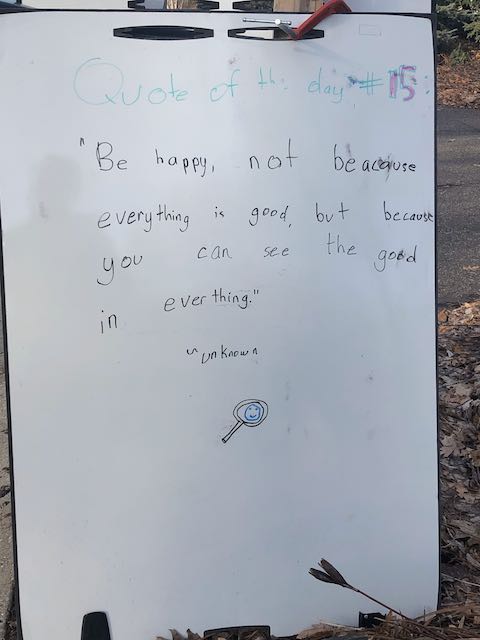 Quote of the day #15:
"Be happy, not beacause
everything is good, but because
you can see the good
in everthing."
~ unknown